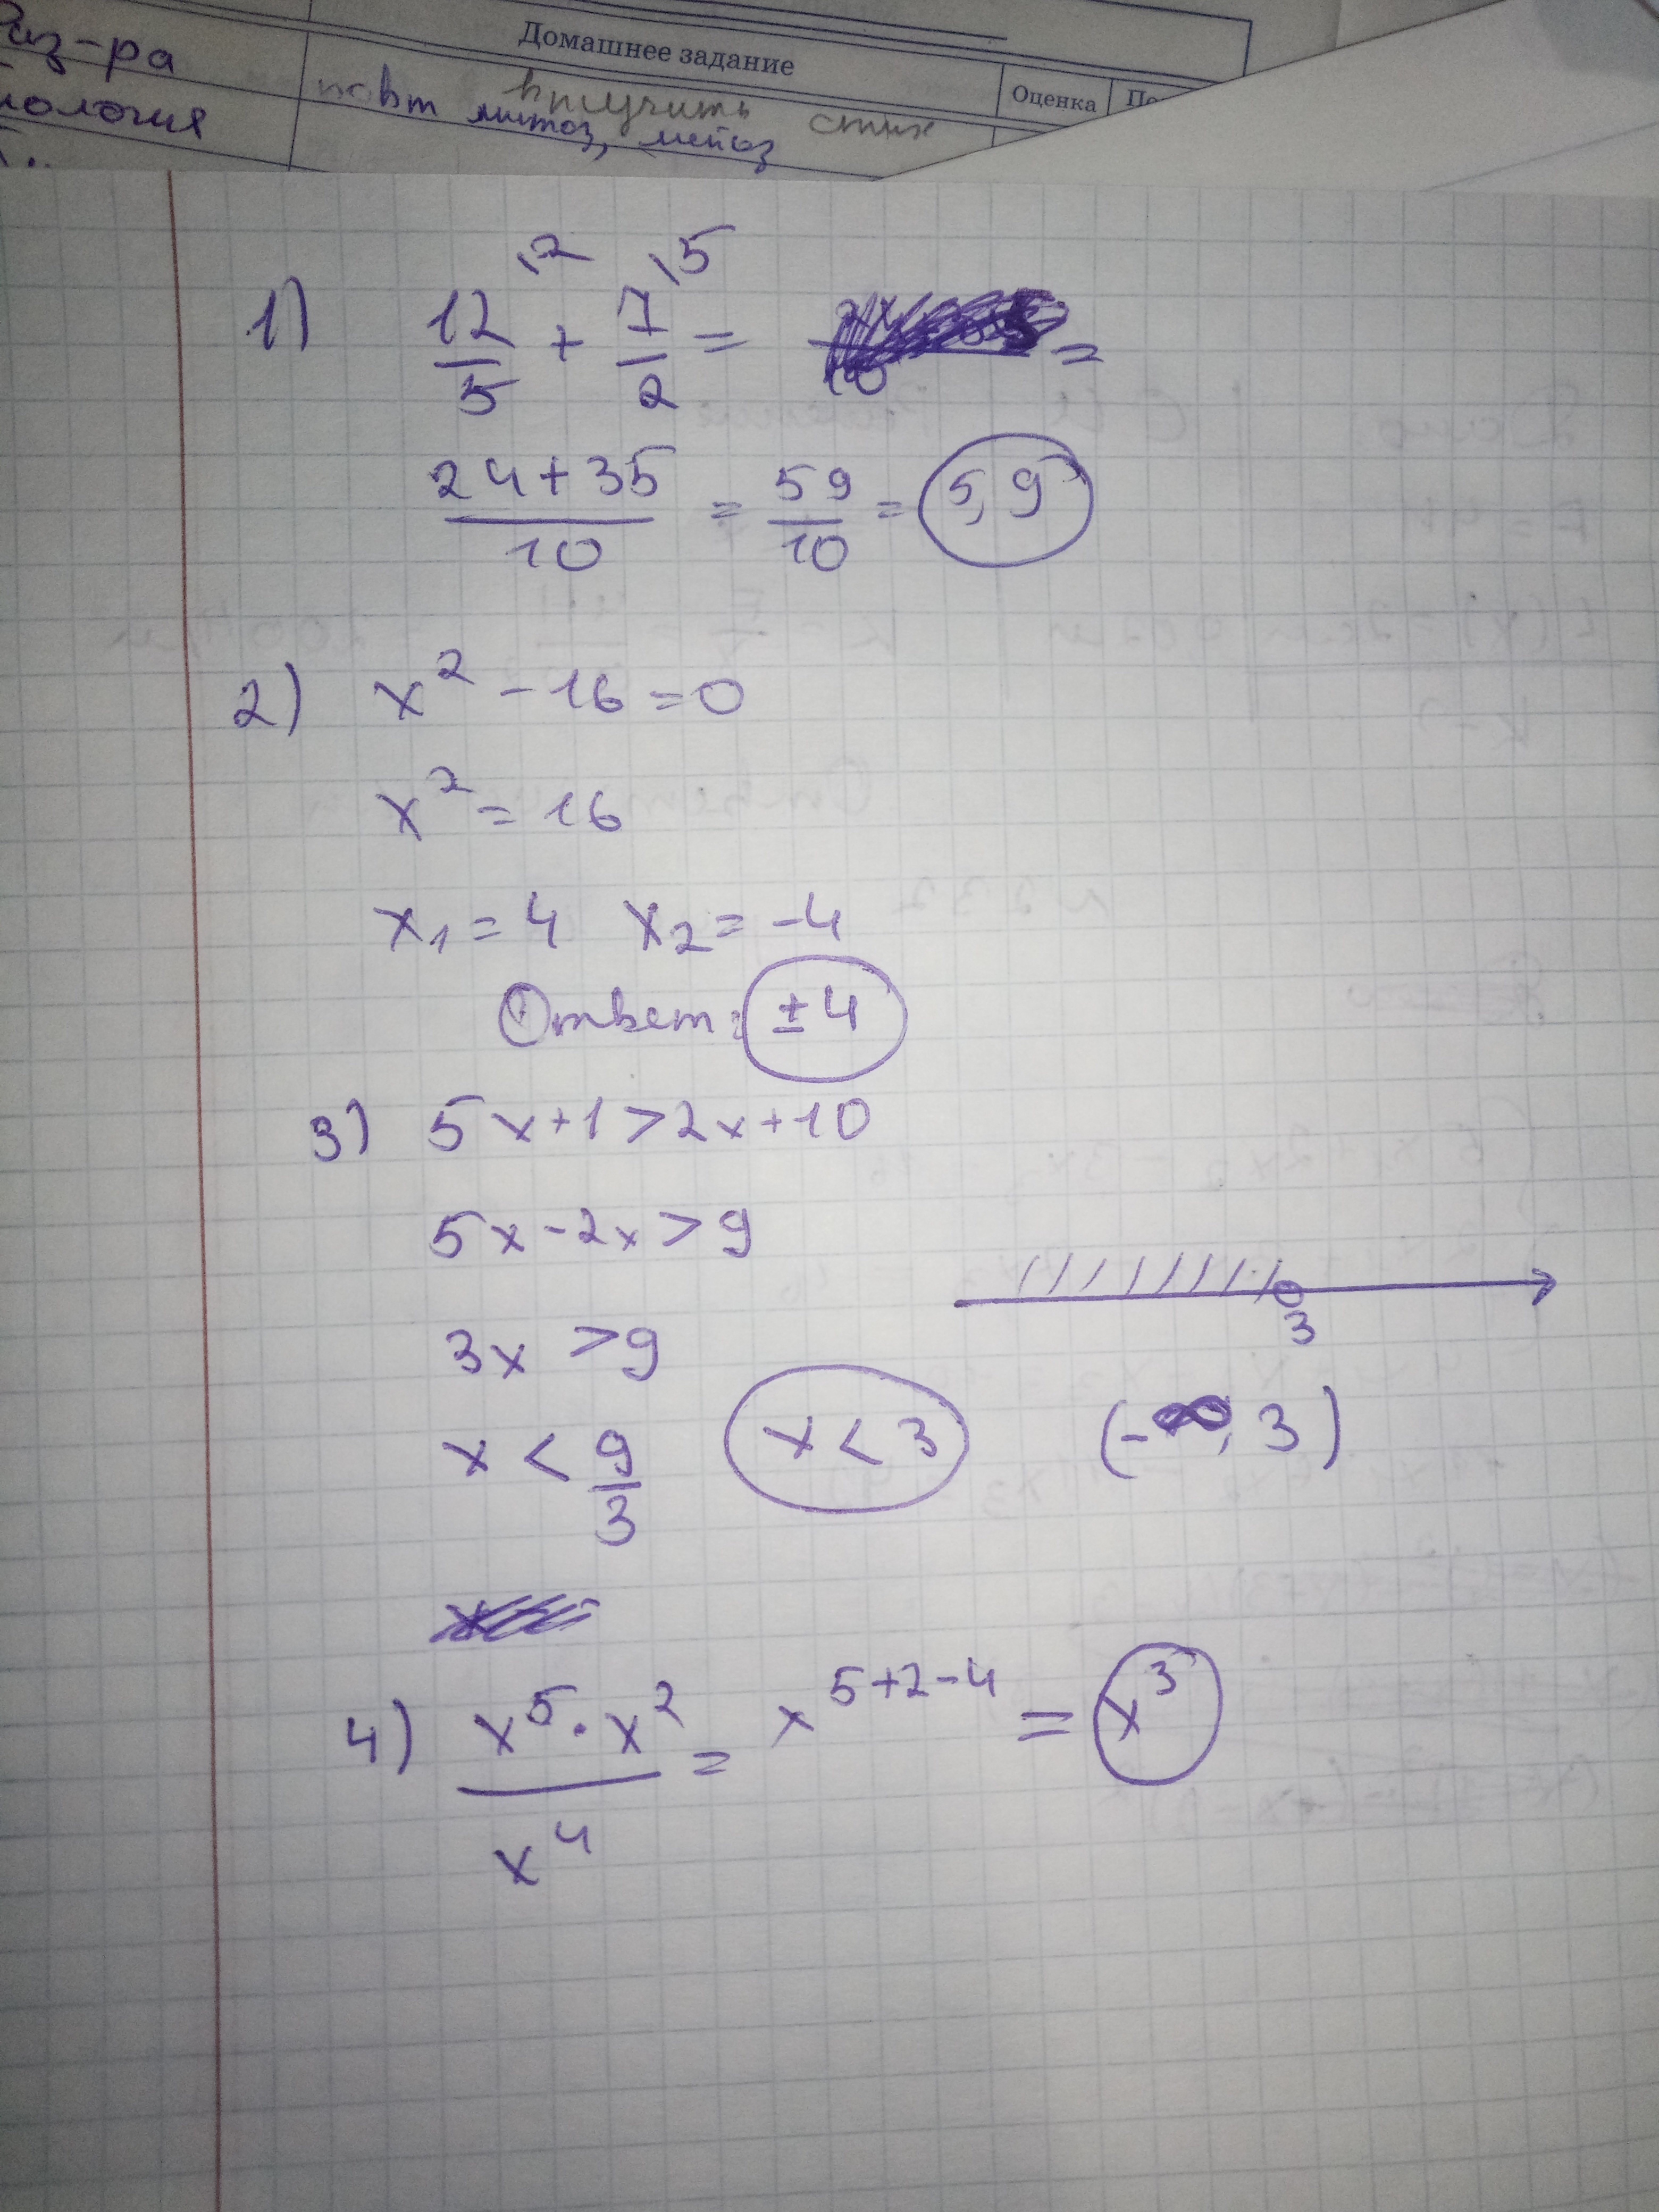 Домашнее задание
Оценка
выучить стих
повт митоз, мейоз
1) 12/5 \2 + 7/2 \5 = =
(24+35)/10 = 59/10 = 5,9
2) x² - 16 = 0
x² = 16
x₁ = 4 x₂ = -4
Ответ: ±4
3) 5x+1>2x+10
5x-2x>9
3x >9
3
x < 9/3 x < 3 (-∞, 3)
4) (x⁵·x²)/x⁴ = x⁵⁺²⁻⁴ = x³